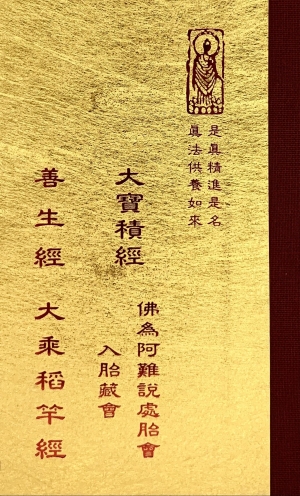 是真精進是名
真法供養如來
大寶積經
佛為阿難說處胎會
入胎藏會
善生經 大乘稻竿經